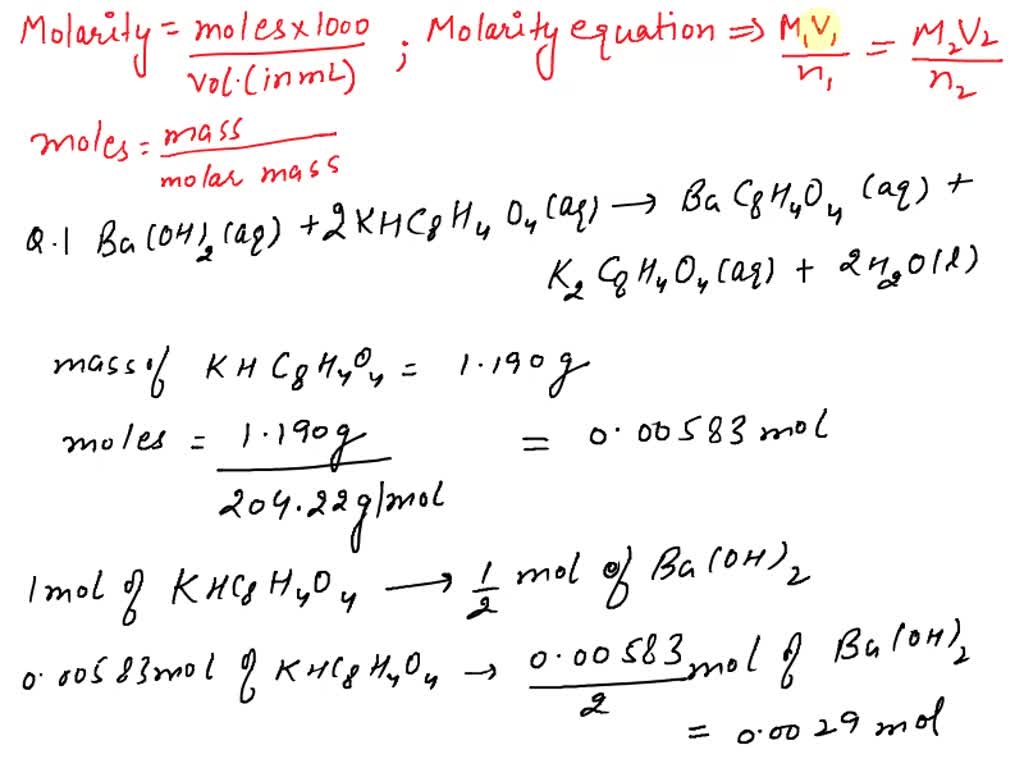 Molarity = moles×1000 / vol.(in mL) ; Molarity equation ⇒ M₁V₁ / n₁ = M₂V₂ / n₂
moles = mass / molar mass
Q.1 Ba(OH)₂(aq) + 2KHC₈H₄O₄(aq) → BaC₈H₄O₄(aq) +
K₂C₈H₄O₄(aq) + 2H₂O(l)
mass of KHC₈H₄O₄ = 1.190g
moles = 1.190g / 204.22g/mol = 0.00583 mol
1 mol of KHC₈H₄O₄ → 1/2 mol of Ba(OH)₂
0.00583 mol of KHC₈H₄O₄ → 0.00583 / 2 mol of Ba(OH)₂
= 0.0029 mol